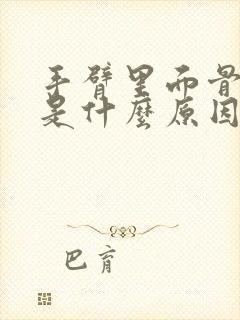 手臂里面骨
是什麼原因
巴育